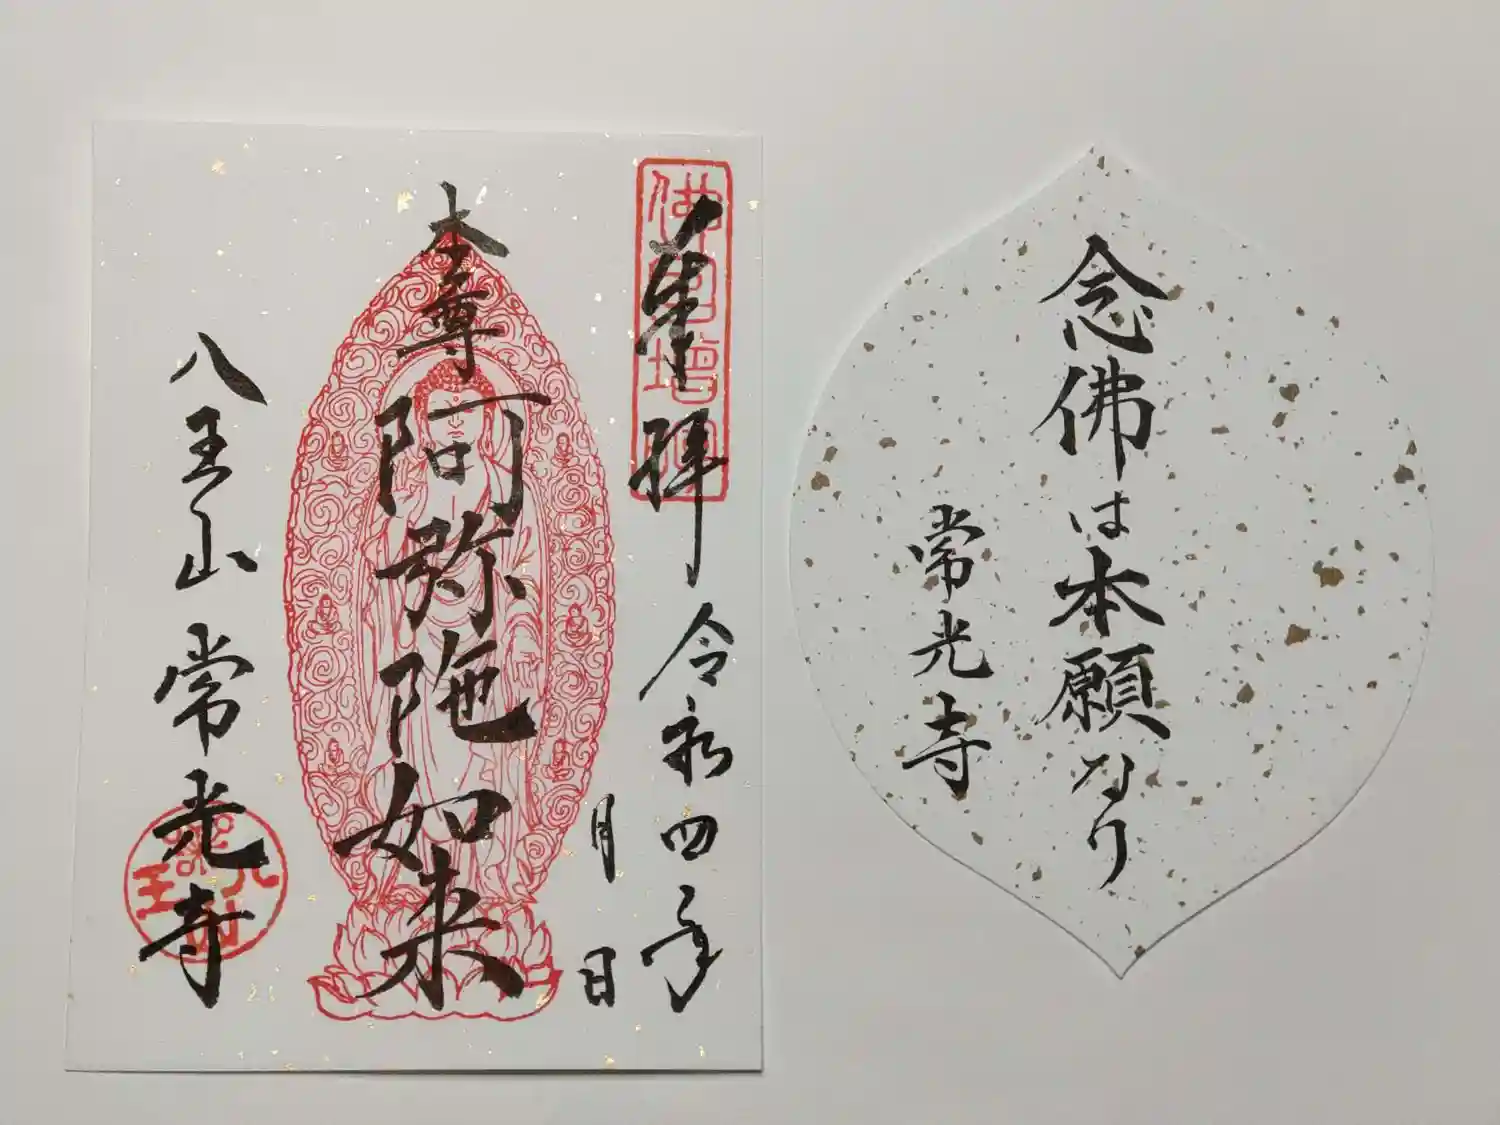 念佛は本願なり
常光寺
奉拝
令和四年
月
日
本尊
阿弥陀如来
八王山
常光寺